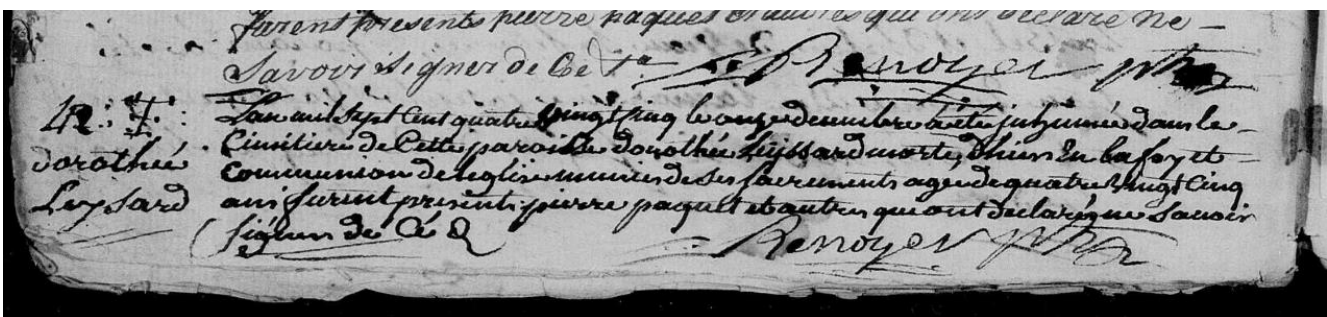 furent presents pierre paquet et autres qui ont declaré ne
Savoir signer de Ce
Renoyer
42:
dorothée
Leyssard
L'an mil sept Cent quatre vingt Cinq le onze decembre a été inhumée dans le
Cimitiere de Cette paroisse dorothée Leyssard morte d'hier En la foy et
Communion de l'eglise munies de Ses Sacrements agée de quatre vingt Cinq
ans furent presents pierre paquet et autres qui ont declaré ne Savoir
signer de Ce
Renoyer